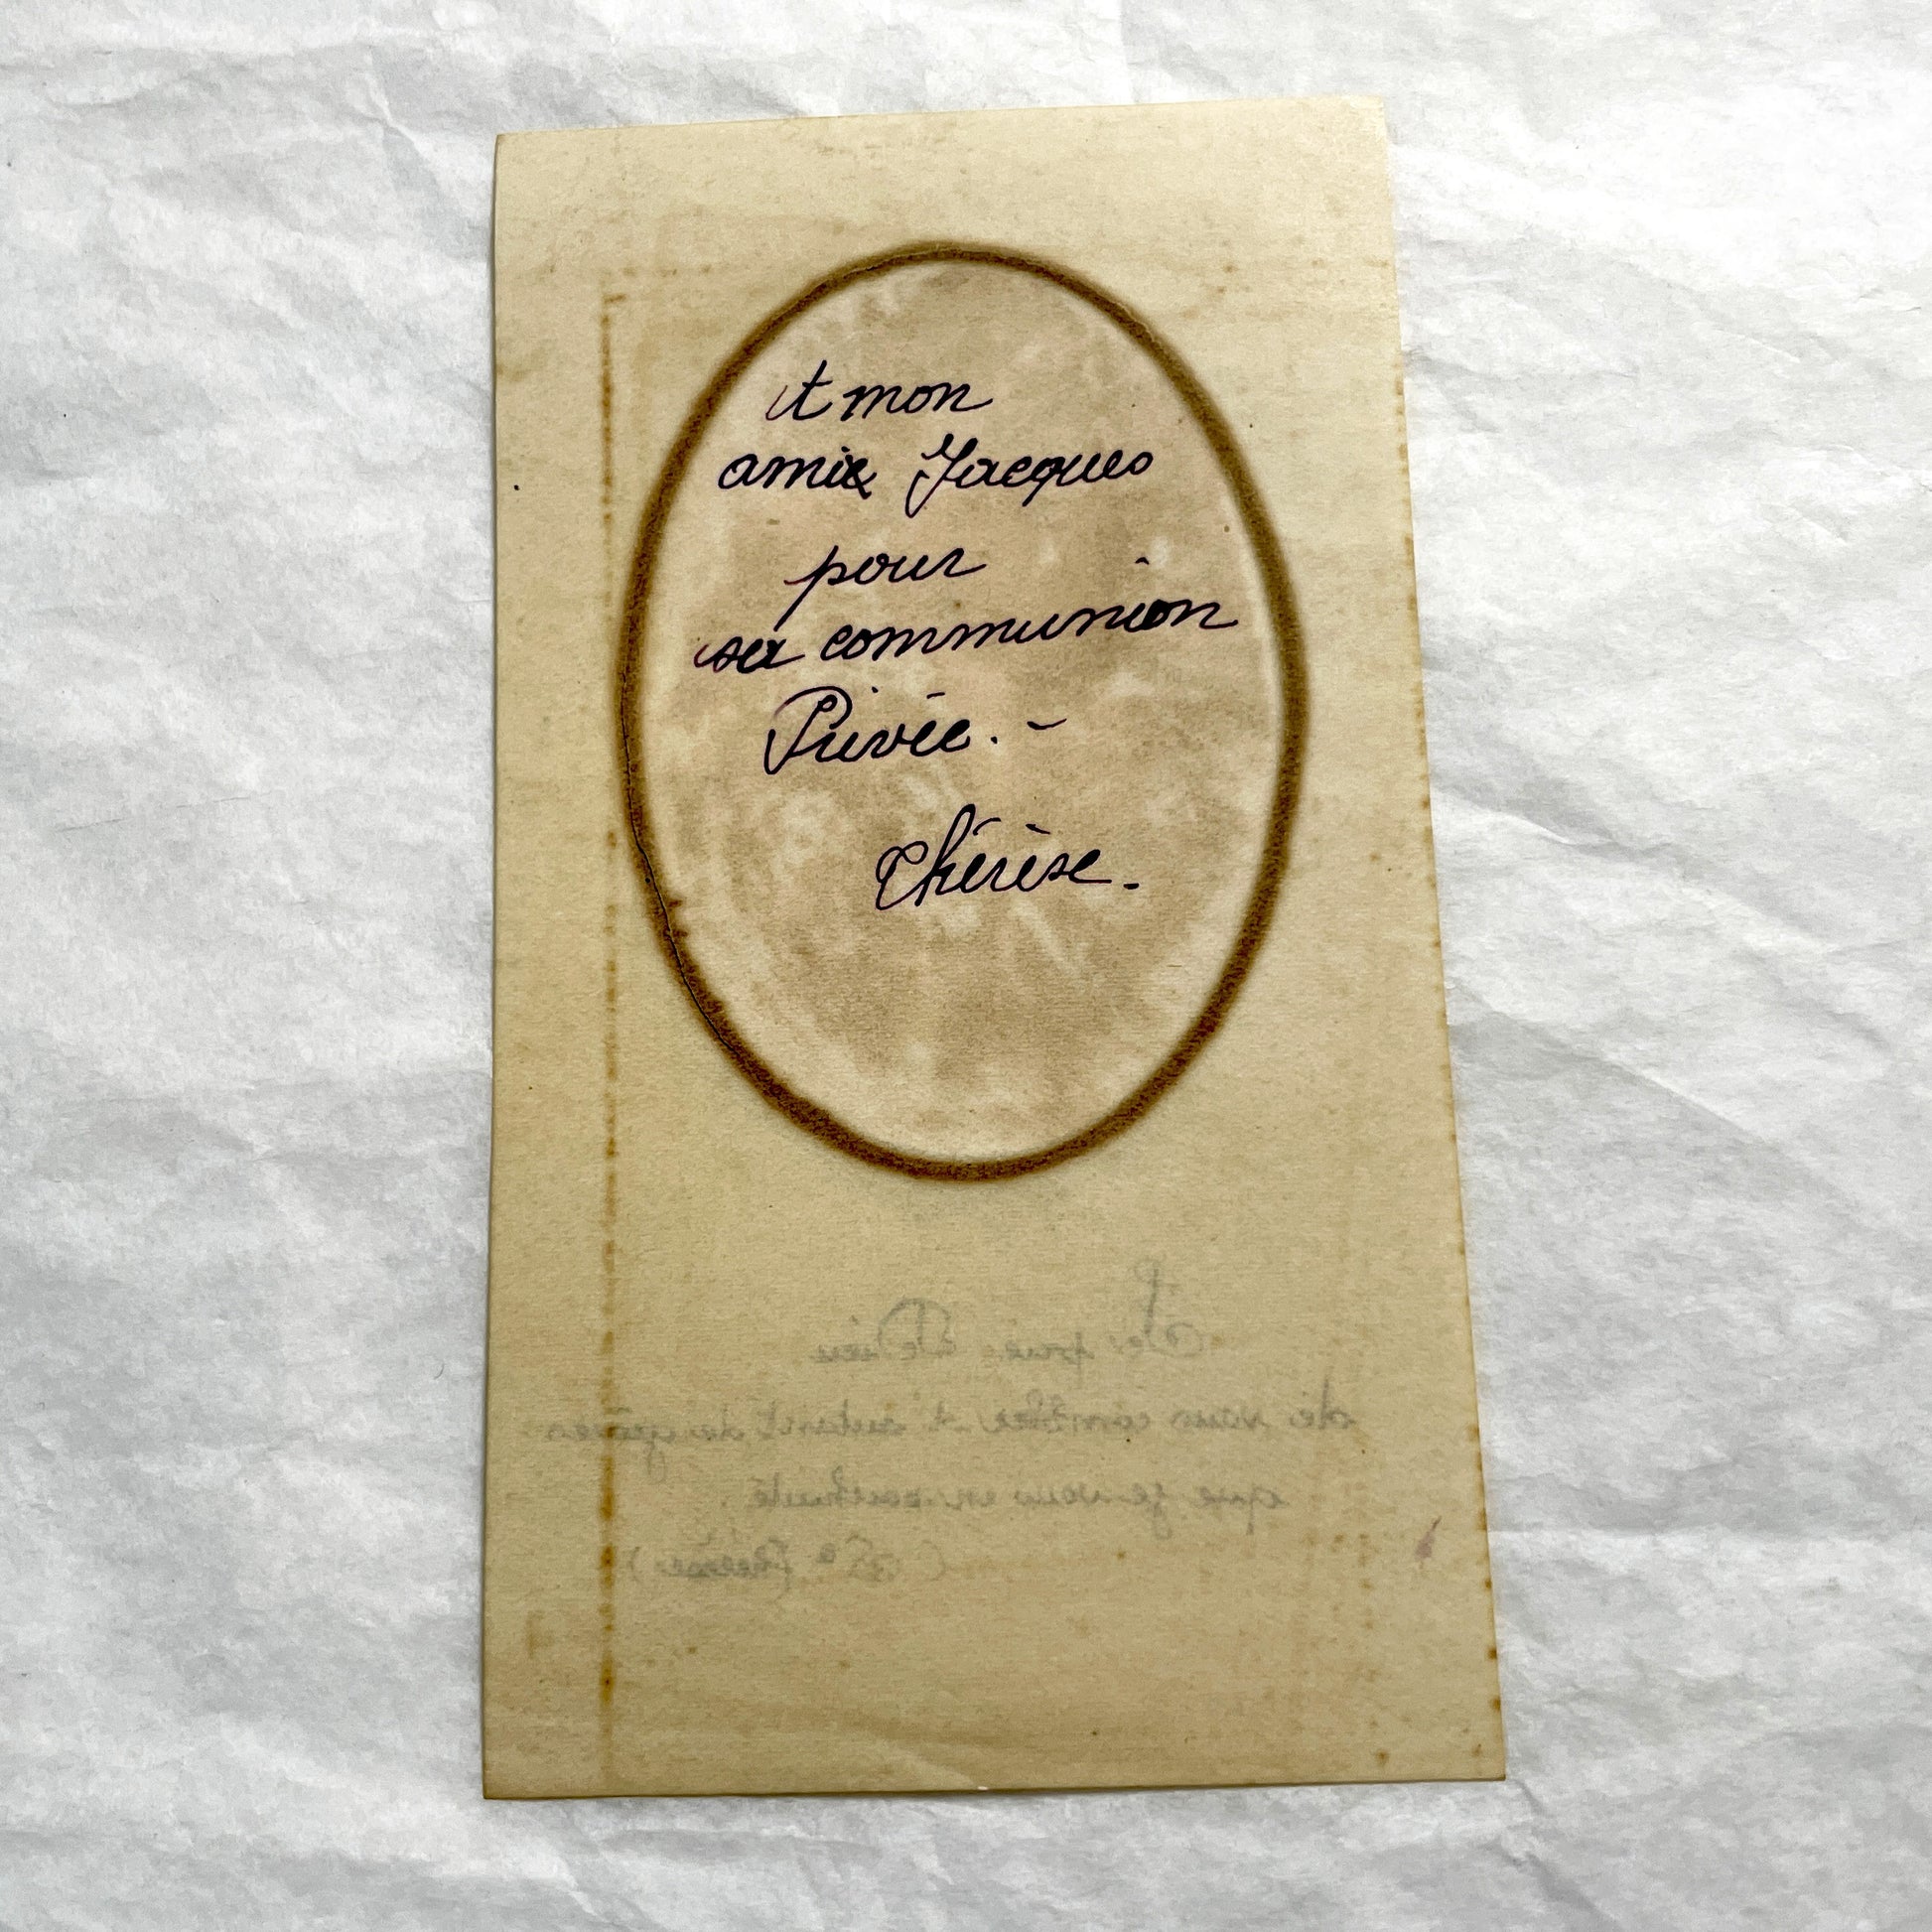 A mon
ami Jacques
pour
sa communion
Privée. -
Thérèse.
Je prie Dieu
de vous combler d'autant de grâces
que je vous en souhaite.
(Ste Thérèse)